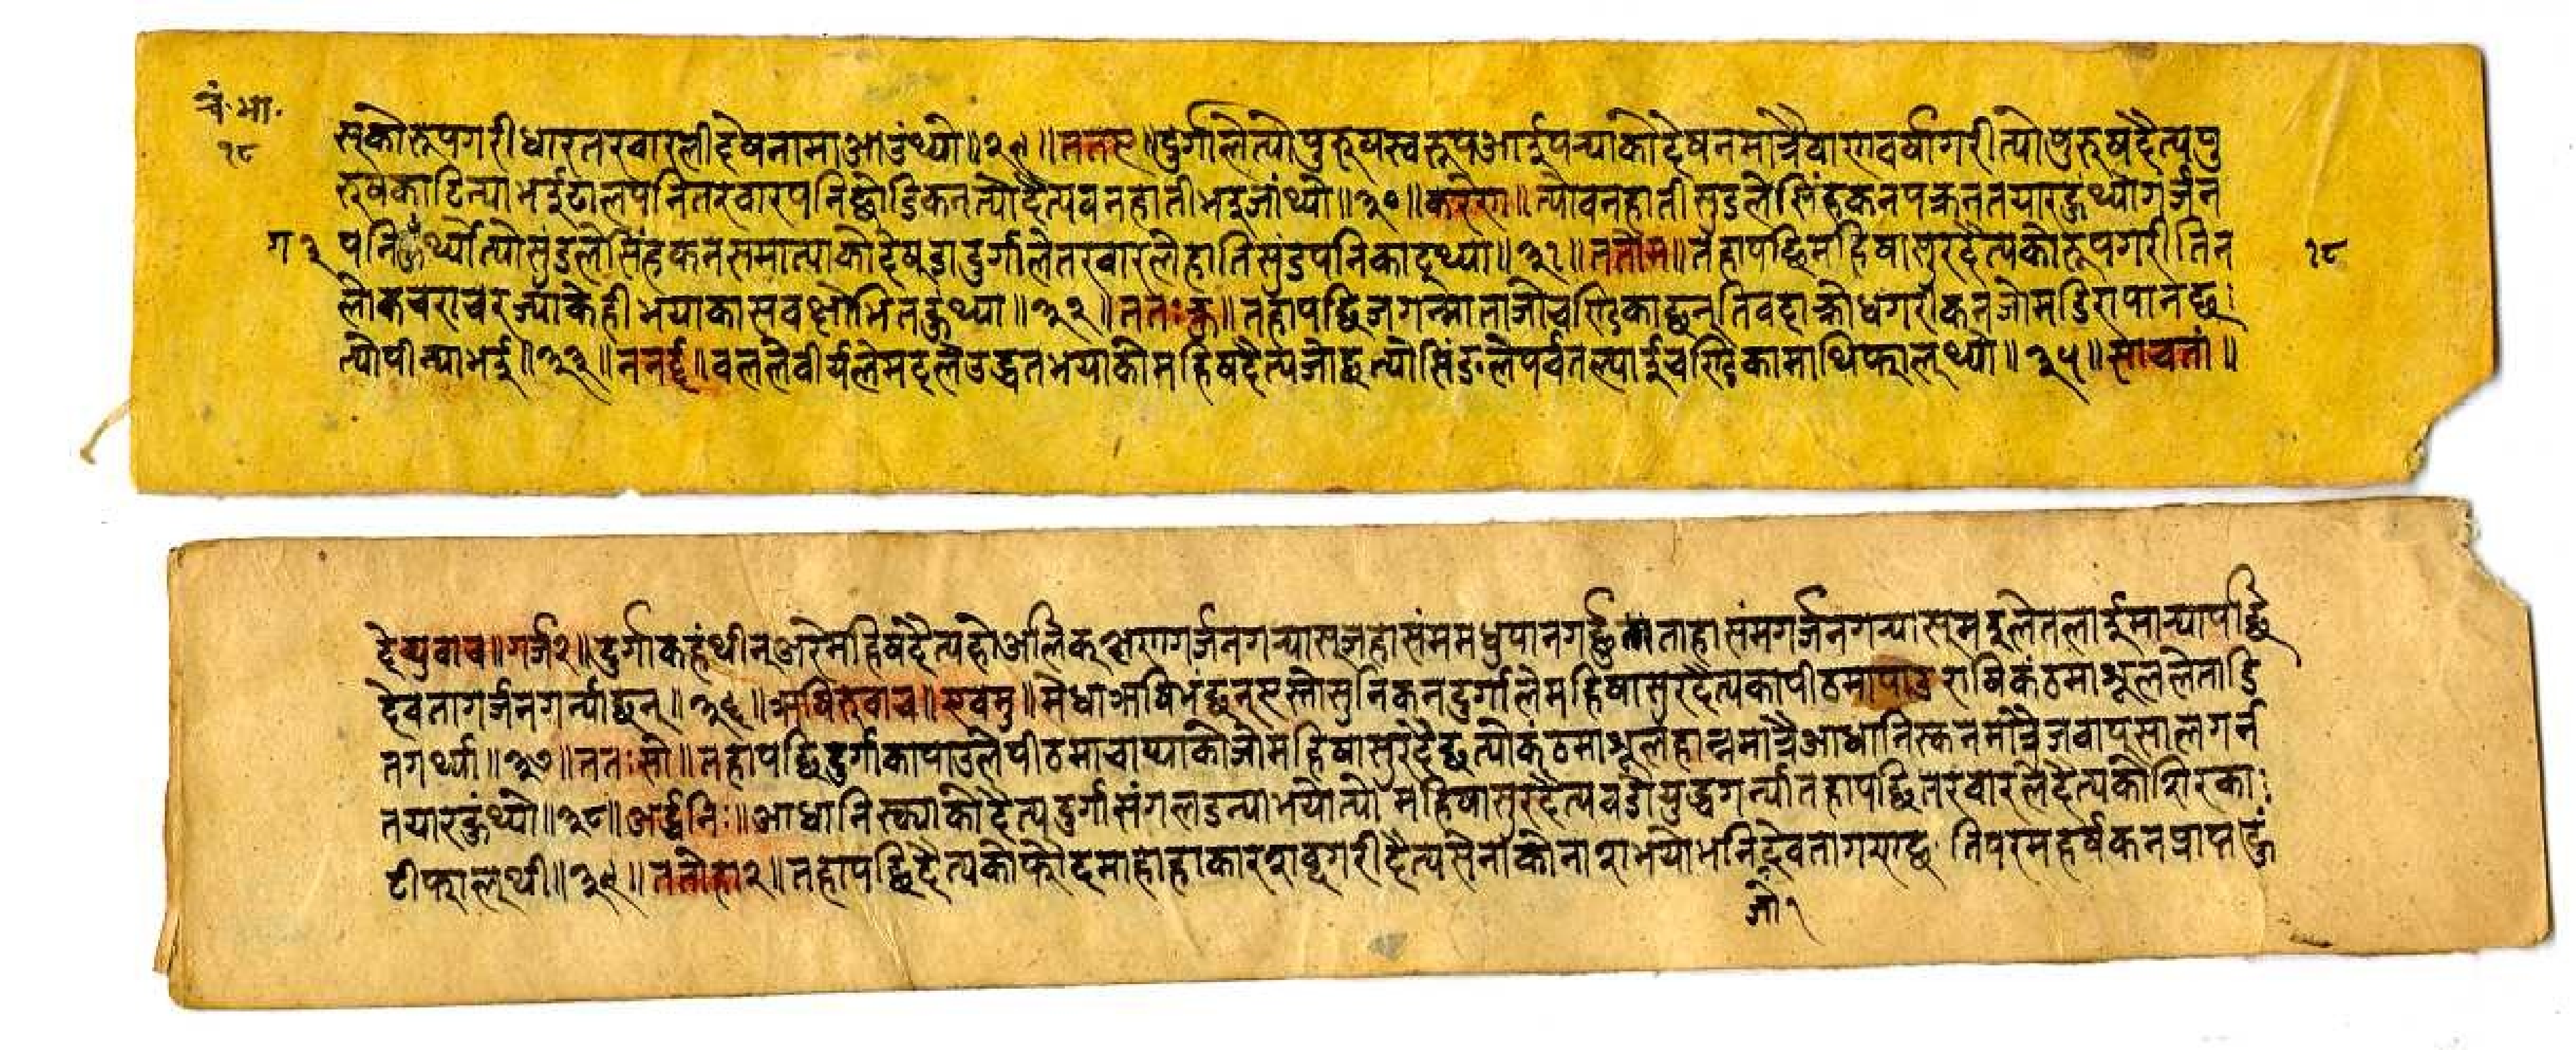 चं. भा.
१८
सको रूप गरी धारतरवार ली देषनामा आउंथ्यो॥२९॥ततए॥दुर्गाले त्यो पुरुष स्वरूप आईपर्‍याको देषनमात्रै वाण वर्षा गरी त्यो पुरुष दैत्य पु
रुष काटिन्या भई ढाल पनि तरवार पनि छोडिकन त्यो दैत्य वनहाती भइ जांथ्यो॥३०॥करेण॥त्यो वनहाती सुडले सिंहकन पक्रन तयार हुंथ्यो गर्जन
ग ३
पनि थ्यो त्यो सुंडले सिंहकन समात्याको देषदा दुर्गाले तरवारले हानि सुंड पनि काट्थ्या॥३१॥ततोम॥तहापछि महिषासुर दैत्यको रूप गरी तिन
१८
लोक चराचर ज्या केही भयाका सव क्षोभित हुंथ्या॥३२॥ततःक्रु॥तहापछि जगन्माता जो चण्डिका छन् ति वहा क्रोध गरीकन जो मदिरा पान छ
त्यो पीन्या भई॥३३॥ननर्द्द॥वलले वीर्यले मदले उद्धत भयाको महिष दैत्य जो छ त्यो सिंङले पर्वतल्याई चण्डिकामाथि फाल्थ्यो॥३५॥साचतां॥
देव्युवाच॥गर्ज२॥दुर्गा कहंथीन् अरे महिष दैत्य हो अलिक् क्षण गर्जन गर्‍यास् जहासंम मधुपान गर्छु ताहासंम गर्जन गर्‍यास् मइले तलाई मार्‍यापछि
देवता गर्जन गर्न्या छन्॥३६॥ऋषिरुवाच॥एवमु॥मेधा ऋषि भंछन् एस्तो सुनिकन दुर्गाले महिषासुर दैत्यका पीठमा पाउ राषि कंठमा शूलले ताडि
त गर्थ्यी॥३७॥ततःसो॥तहापछि दुर्गाका पाउले पीठमा चाप्याको जो महिषासुर दै छ त्यो कंठमा शूल हान्नमात्रै आधा निस्कनमात्रै जवापुसाल गर्न
तयार हुंथ्यो॥३८॥अर्द्धनिः॥आधा निस्क्याको दैत्य दुर्गासंग लडन्या भयो त्यो महिषासुर दैत्य वडो युद्ध गर्न्यी तहापछि तरवारले दैत्यको शिर का
टी फाल्थी॥३९॥ततोहा२॥तहापछि दैत्यको फौदमा हाहाकार शब्द गरी दैत्य सैनाको नाश भयो भनि देवतागण छ ति परम हर्षकन प्राप्त हुं
जो १